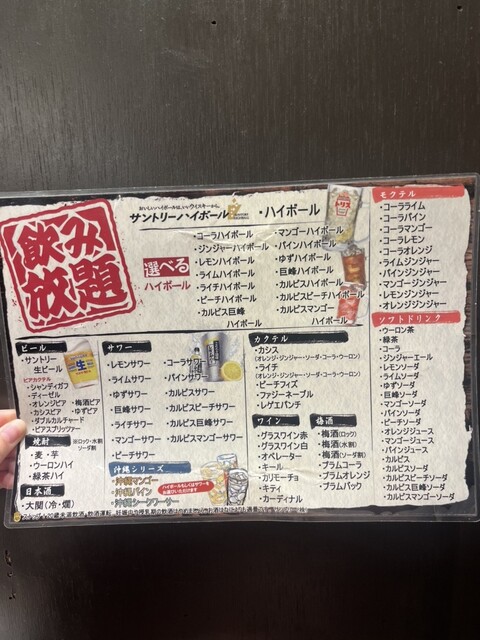 飲み
放題
おいしいハイボールは、いいウイスキーから。
サントリーハイボール
・ハイボール
選べる
ハイボール
・コーラハイボール
・ジンジャーハイボール
・レモンハイボール
・ライムハイボール
・ライチハイボール
・ピーチハイボール
・カルピス巨峰
ハイボール
・マンゴーハイボール
・パインハイボール
・ゆずハイボール
・巨峰ハイボール
・カルピスハイボール
・カルピスピーチハイボール
・カルピスマンゴー
ハイボール
トリス
モクテル
・コーラライム
・コーラパイン
・コーラマンゴー
・コーラレモン
・コーラオレンジ
・ライムジンジャー
・パインジンジャー
・マンゴージンジャー
・レモンジンジャー
・オレンジジンジャー
ソフトドリンク
・ウーロン茶
・緑茶
・コーラ
・ジンジャーエール
・レモンソーダ
・ライムソーダ
・ゆずソーダ
・巨峰ソーダ
・マンゴーソーダ
・パインソーダ
・ピーチソーダ
・オレンジジュース
・マンゴージュース
・パインジュース
・カルピス
・カルピスソーダ
・カルピスピーチソーダ
・カルピス巨峰ソーダ
・カルピスマンゴーソーダ
ビール
・サントリー
生ビール
生
ビアカクテル
・シャンディガフ
・ディーゼル
・オレンジビア ・梅酒ビア
・カシスビア ・ゆずビア
・ダブルカルチャード
・ビアスプリッツァー
焼酎
※ロック・水割
ソーダ割
・麦・芋
・ウーロンハイ
・緑茶ハイ
日本酒
・大関(冷・燗)
サワー
・レモンサワー
・ライムサワー
・ゆずサワー
・巨峰サワー
・ライチサワー
・マンゴーサワー
・ピーチサワー
・コーラサワー
・パインサワー
・カルピスサワー
・カルピスピーチサワー
・カルピス巨峰サワー
・カルピスマンゴーサワー
沖縄シリーズ
・沖縄マンゴー
・沖縄パイン
・沖縄シークワーサー
ハイボールもしくはサワーを
お選びいただけます
カクテル
・カシス
(オレンジ・ジンジャー・ソーダ・コーラ・ウーロン)
・ライチ
(オレンジ・ジンジャー・ソーダ・コーラ・ウーロン)
・ピーチフィズ
・ファジーネーブル
・レゲエパンチ
ワイン
・グラスワイン赤
・グラスワイン白
・オペレーター
・キール
・カリモーチョ
・キティ
・カーディナル
梅酒
・梅酒(ロック)
・梅酒(水割)
・梅酒(ソーダ割)
・プラムコーラ
・プラムオレンジ
・プラムバック